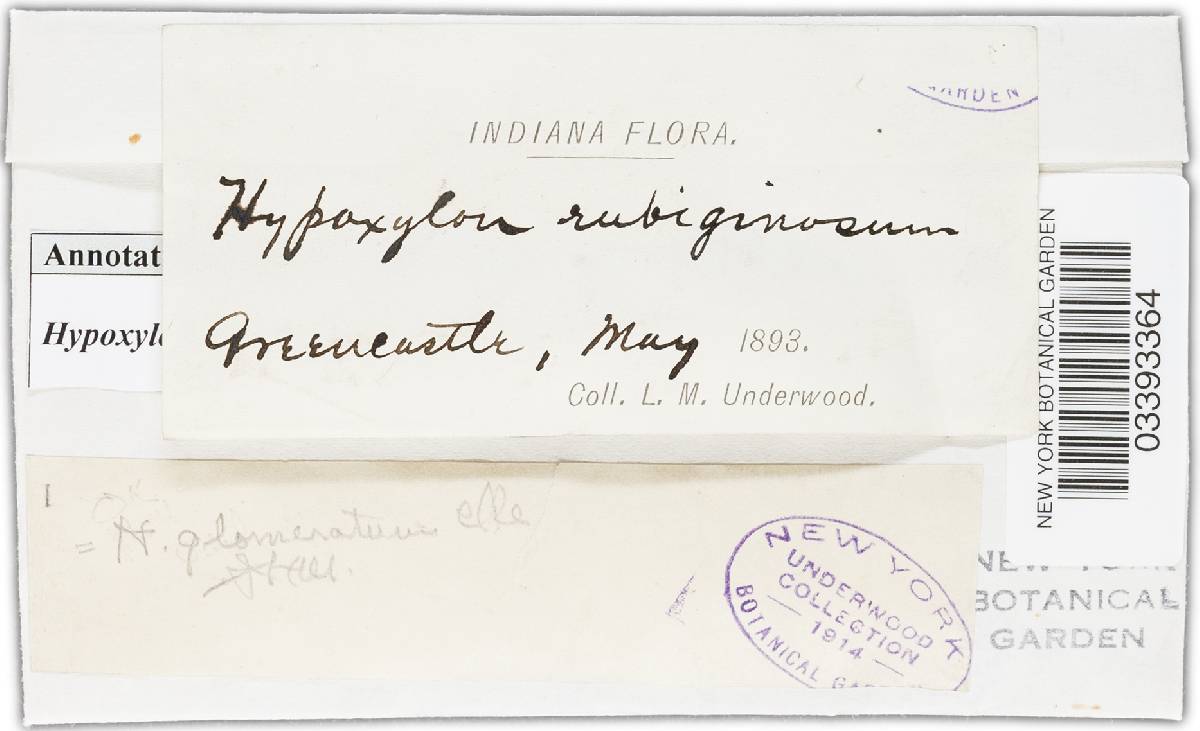 GARDEN
INDIANA FLORA.
Hypoxylon rubiginosum
Greencastle, May 1893.
Coll. L. M. Underwood.
Annotat
Hypoxylo
NEW YORK BOTANICAL GARDEN
03393364
= H. glomeratum Cke
NEW YORK
UNDERWOOD
COLLECTION
1914
BOTANICAL GARDEN
NEW YORK
BOTANICAL
GARDEN